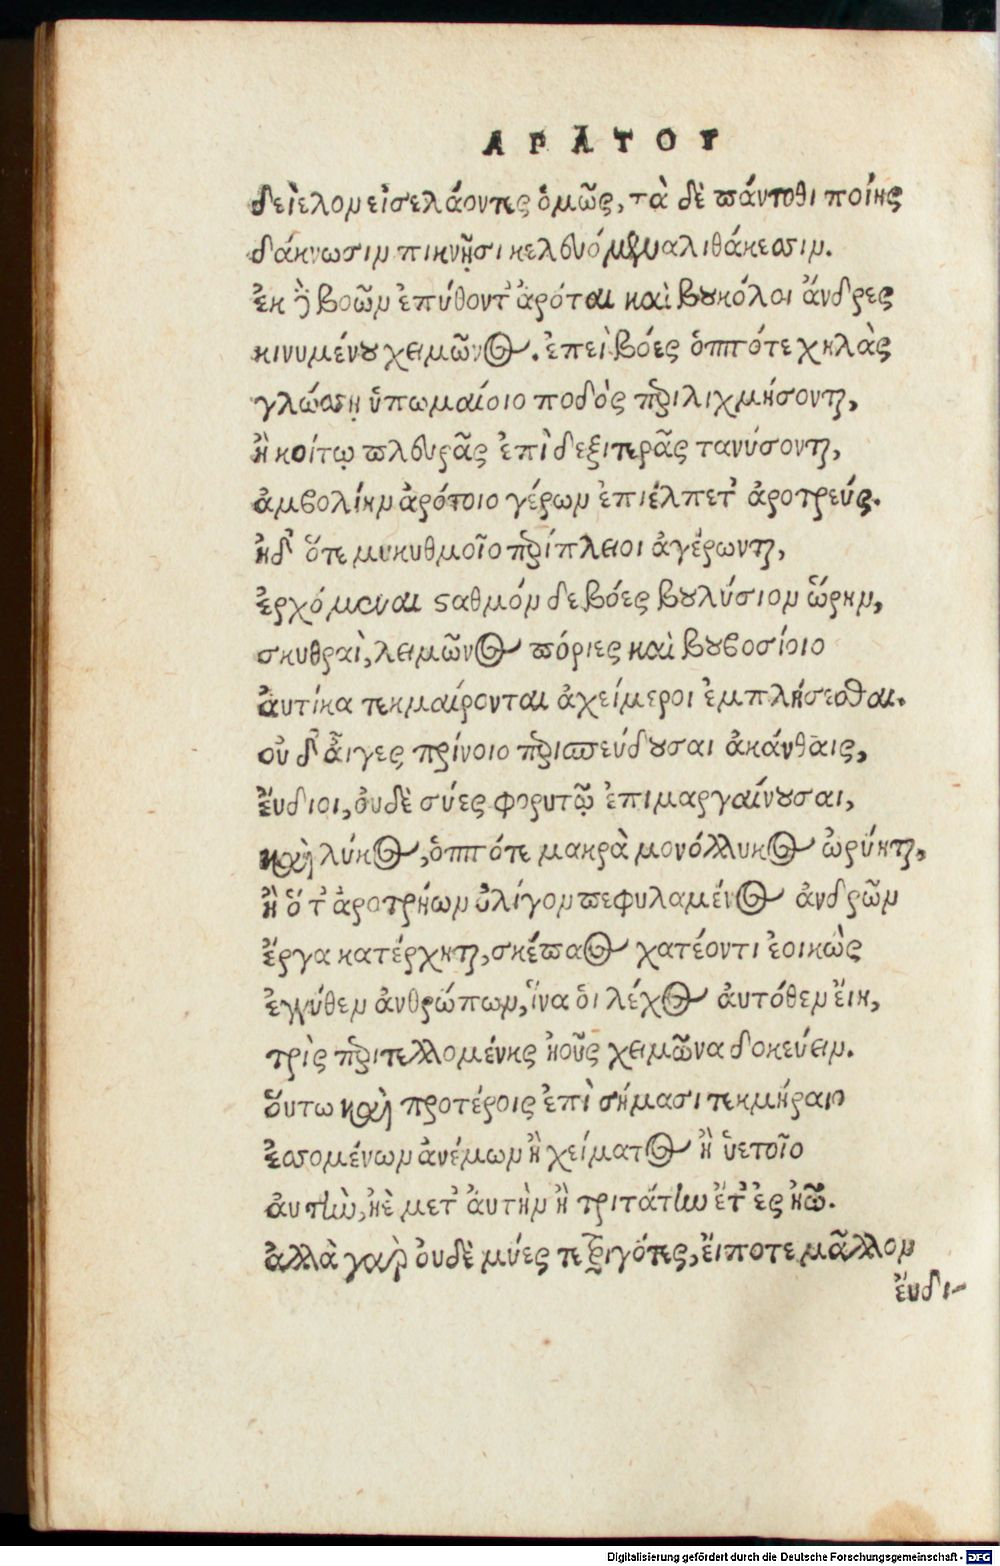 ΑΡΑΤΟΥ
δείελον εἰσελάοντες ὁμῶς, τὰ δὲ πάντοθι ποίης
δάκνωσιν πυκινῇσι κελευόμενα λιθάκεσσιν.
ἐκ δὲ βοῶν ἐπύθοντ' ἀρόται καὶ βουκόλοι ἄνδρες
κινυμένου χειμῶνος. ἐπεὶ βόες ὁππότε χηλὰς
γλώσσῃ ὑπωμαίοιο ποδὸς περιλιχμήσονται,
ἢ κοίτῳ πλευρᾶς ἐπὶ δεξιτερᾶς τανύσονται,
ἀμβολίην ἀρότοιο γέρων ἐπιέλπετ' ἀροτρεύς.
ἠδ' ὅτε μυκυθμοῖο περίπλειοι ἀγέρωνται,
ἐρχόμεναι σταθμόνδε βόες βουλύσιον ὥρην,
σκυθραὶ, λειμῶνος πόριες καὶ βουβοσίοιο
ἀυτίκα τεκμαίρονται ἀχείμεροι ἐμπλήσεσθαι.
οὐδ' ἆιγες πρίνοιο περισπεύδουσαι ἀκάνθαις,
ἔυδιοι, ὀυδὲ σύες φορυτῷ ἐπιμαργαίνουσαι,
καὶ λύκος, ὁππότε μακρὰ μονόλλυκος ὠρύηται,
ἢ ὅτ' ἀροτρήων ὀλίγον πεφυλαμένος ἀνδρῶν
ἔργα κατέρχηται, σκέπαος χατέοντι ἐοικὼς
ἐγγύθεν ἀνθρώπων, ἵνα ὁι λέχος ἀυτόθεν ἔιη,
τρὶς περιτελλομένης ἠοῦς χειμῶνα δοκεύειν.
ὅυτω καὶ προτέροις ἐπὶ σήμασι τεκμήραιο
ἐσσομένων ἀνέμων ἢ χείματος ἢ ὑετοῖο
ἀυτὴν, ἠὲ μετ' ἀυτὴν ἢ τριτάτην ἔτ' ἐς ἠῶ.
ἀλλὰ γὰρ ὀυδὲ μύες τετριγότες, ἔιποτε μᾶλλον
ἔυδι-
Digitalisierung gefördert durch die Deutsche Forschungsgemeinschaft - DFG